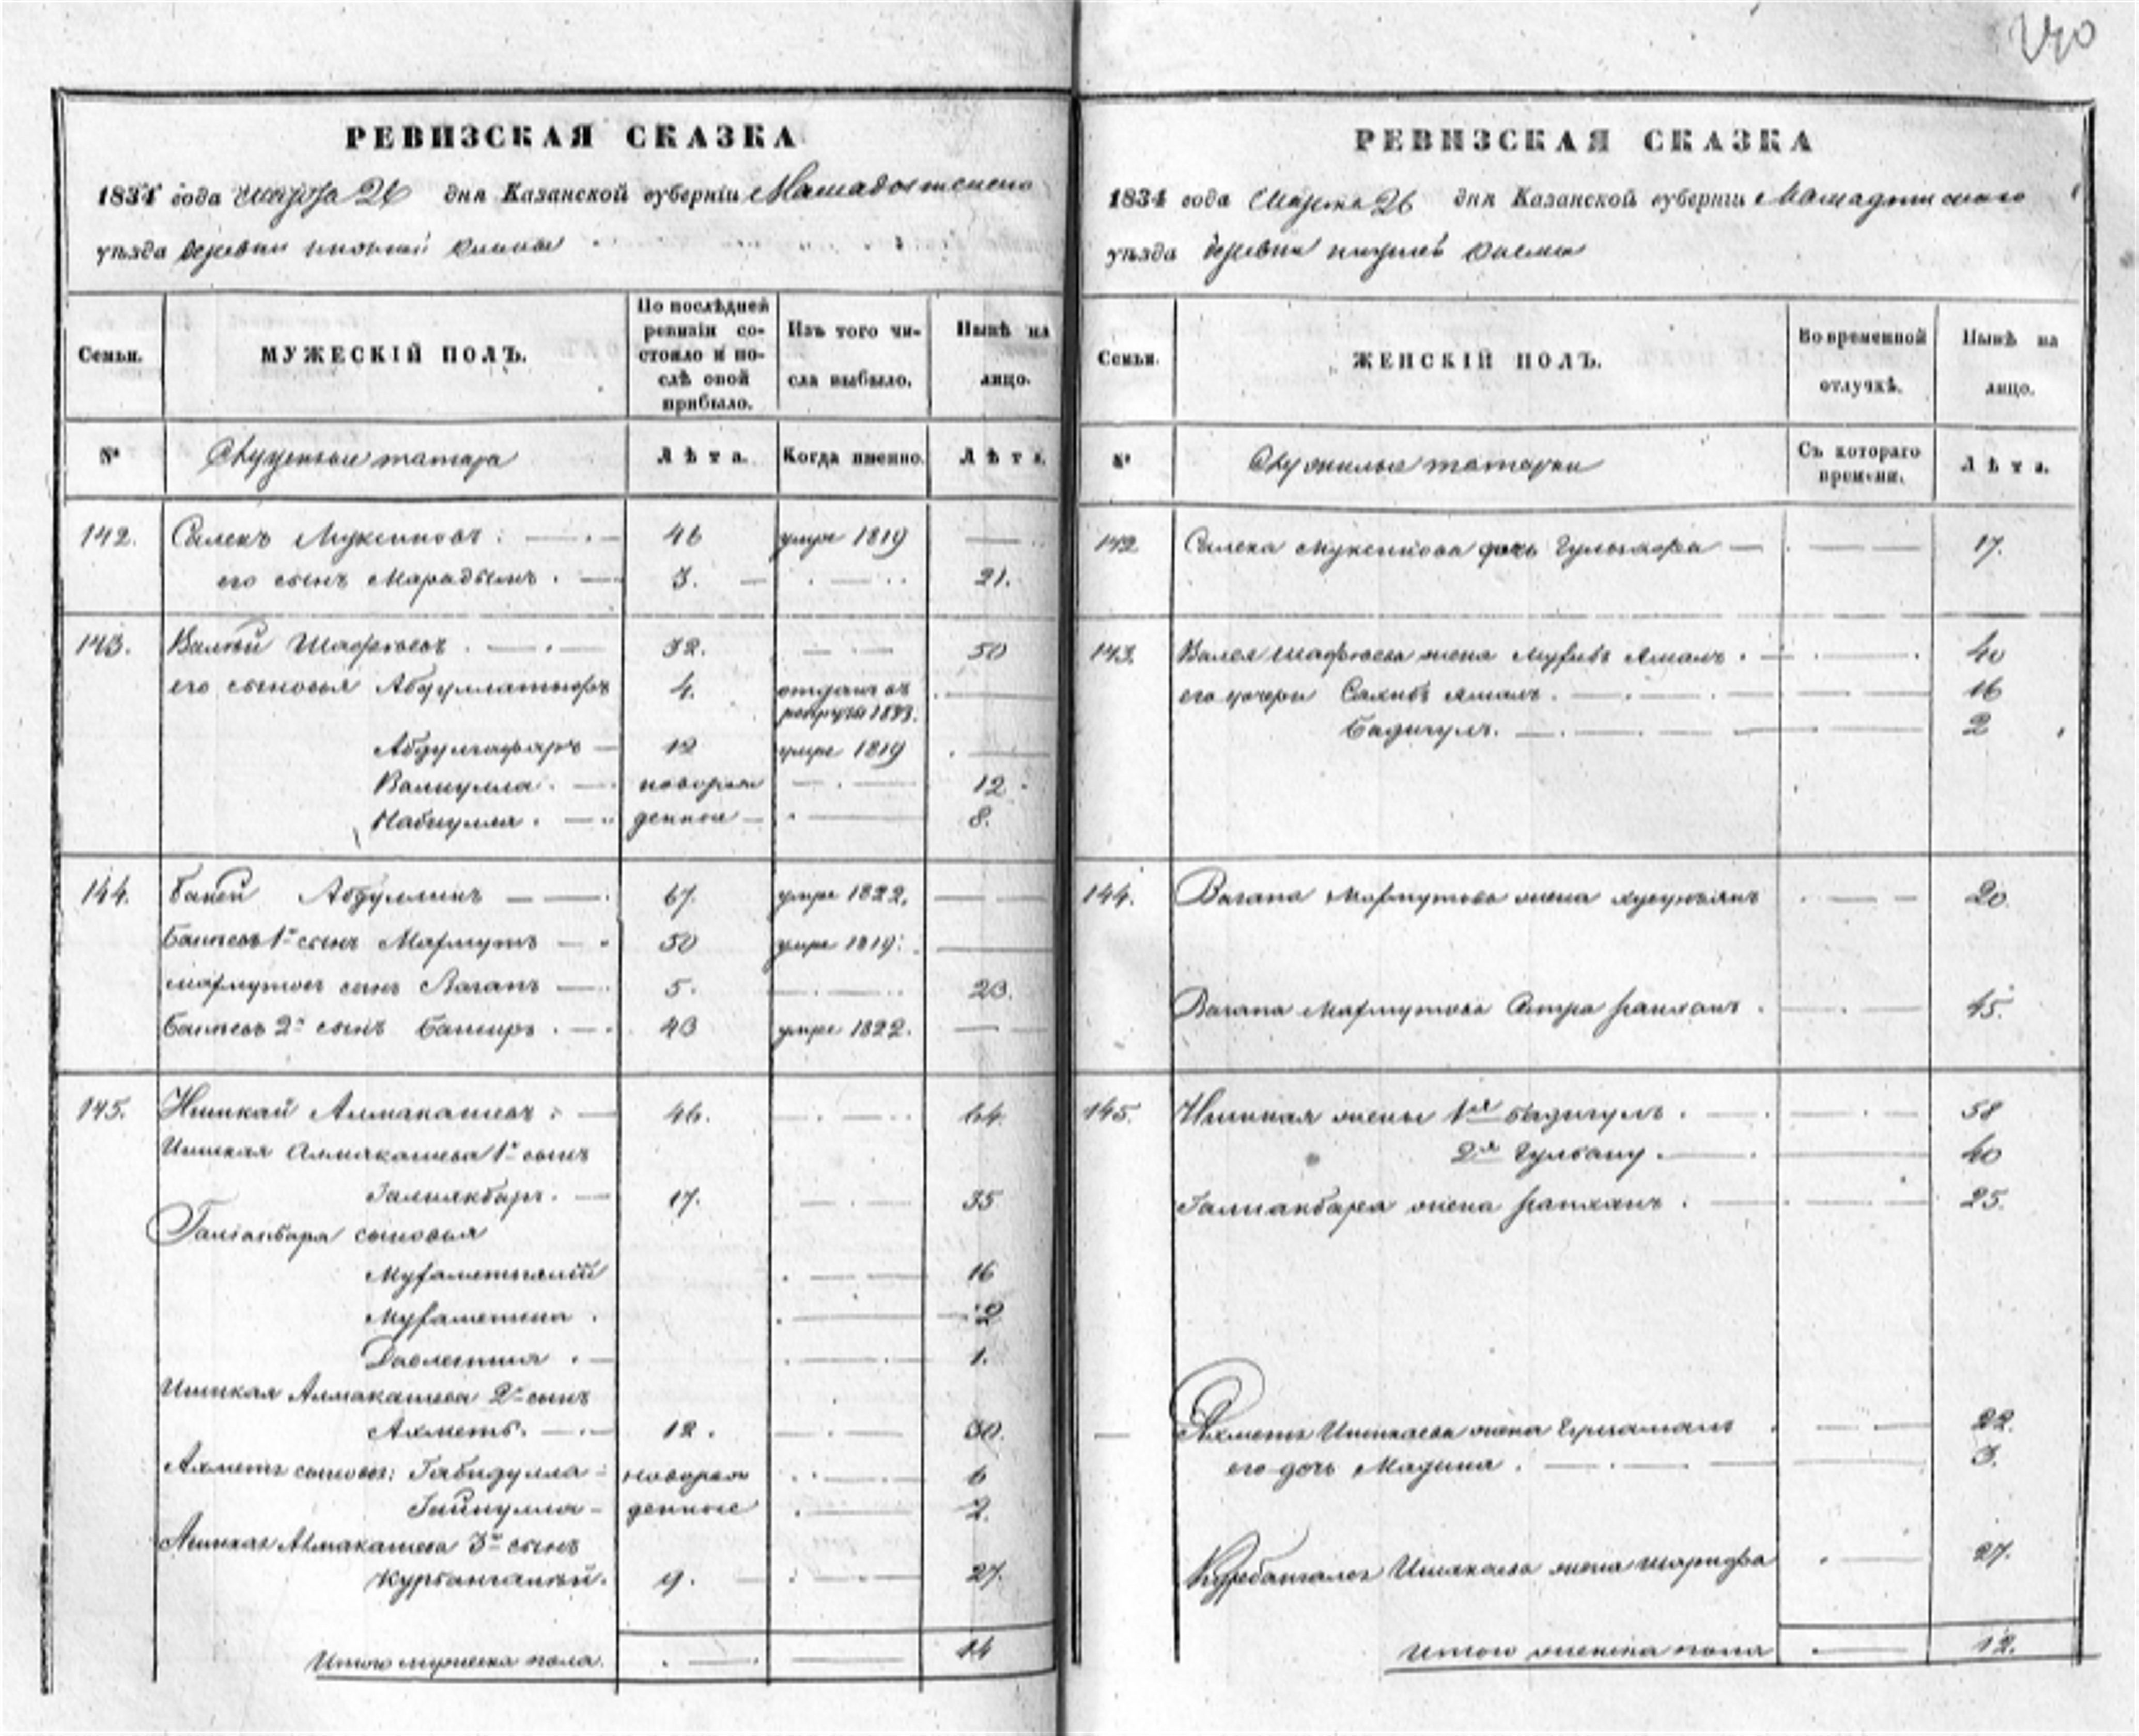 240
РЕВИЗСКАЯ СКАЗКА
1834 года марта 26 дня Казанской губерніи Мамадышскаго
уѣзда деревни нижней
Семьи.
МУЖЕСКІЙ ПОЛЪ.
По послѣдней ревизіи состояло и послѣ оной прибыло.
Изъ того числа выбыло.
Нынѣ на лицо.
№
Служилыя татара
Лѣта.
Когда именно.
Лѣта.
142. Салехъ Муксиновъ 46 умре 1819
его сынъ 3. 21.
143. Валѣй Шафѣевъ 32. 50
его сыновья Абдуллатыфъ 4. отданъ въ
рекруты 1833.
Абдулгафаръ 12 умре 1819
Валиулла новорож 12
Набиулла денные 8.
144. Бакей Абдуллинъ 67. умре 1822.
1й сынъ Махмутъ 50 умре 1819
Махмутовъ сынъ Вагапъ 5. 23.
2й сынъ Баширъ 43 умре 1822.
145. Ишкай Алмакашевъ 46. 64.
Ишкая Алмакашева 1й сынъ
Галиякбаръ 17. 35
Галіакбара сыновья
16
2
1.
Ишкая Алмакашева 2й сынъ
Ахметъ 12. 30.
Ахметъ сыновья: Габидулла новорож 6
Гайнулла денные 2.
Ишкая Алмакашева 3й сынъ
Курбангалѣй 9. 27.
Итого мужеска пола. 14
РЕВИЗСКАЯ СКАЗКА
1834 года Марта 26 дня Казанской губерніи Мамадышскаго
уѣзда деревни нижней
Семьи.
ЖЕНСКІЙ ПОЛЪ.
Во временной отлучкѣ.
Нынѣ на лицо.
№
Служилыя татарки
Съ котораго времени.
Лѣта.
142 Салеха Муксинова дочь 17.
143. Валея Шафѣева жена 40
его дочери Сахибъ Ямалъ 16
Бадигулъ. 2
144. Вагапа Махмутова жена 20.
Вагапа Махмутова 45.
145. Ишкая жены 1я Бадигулъ 58
2я Гулбану 40
Галиакбара жена 25.
Ахметъ Ишкаева жена 22.
его дочь Мадина 3.
Курбангалея Ишкаева жена Шарифа 27.
Итого женска пола 12.